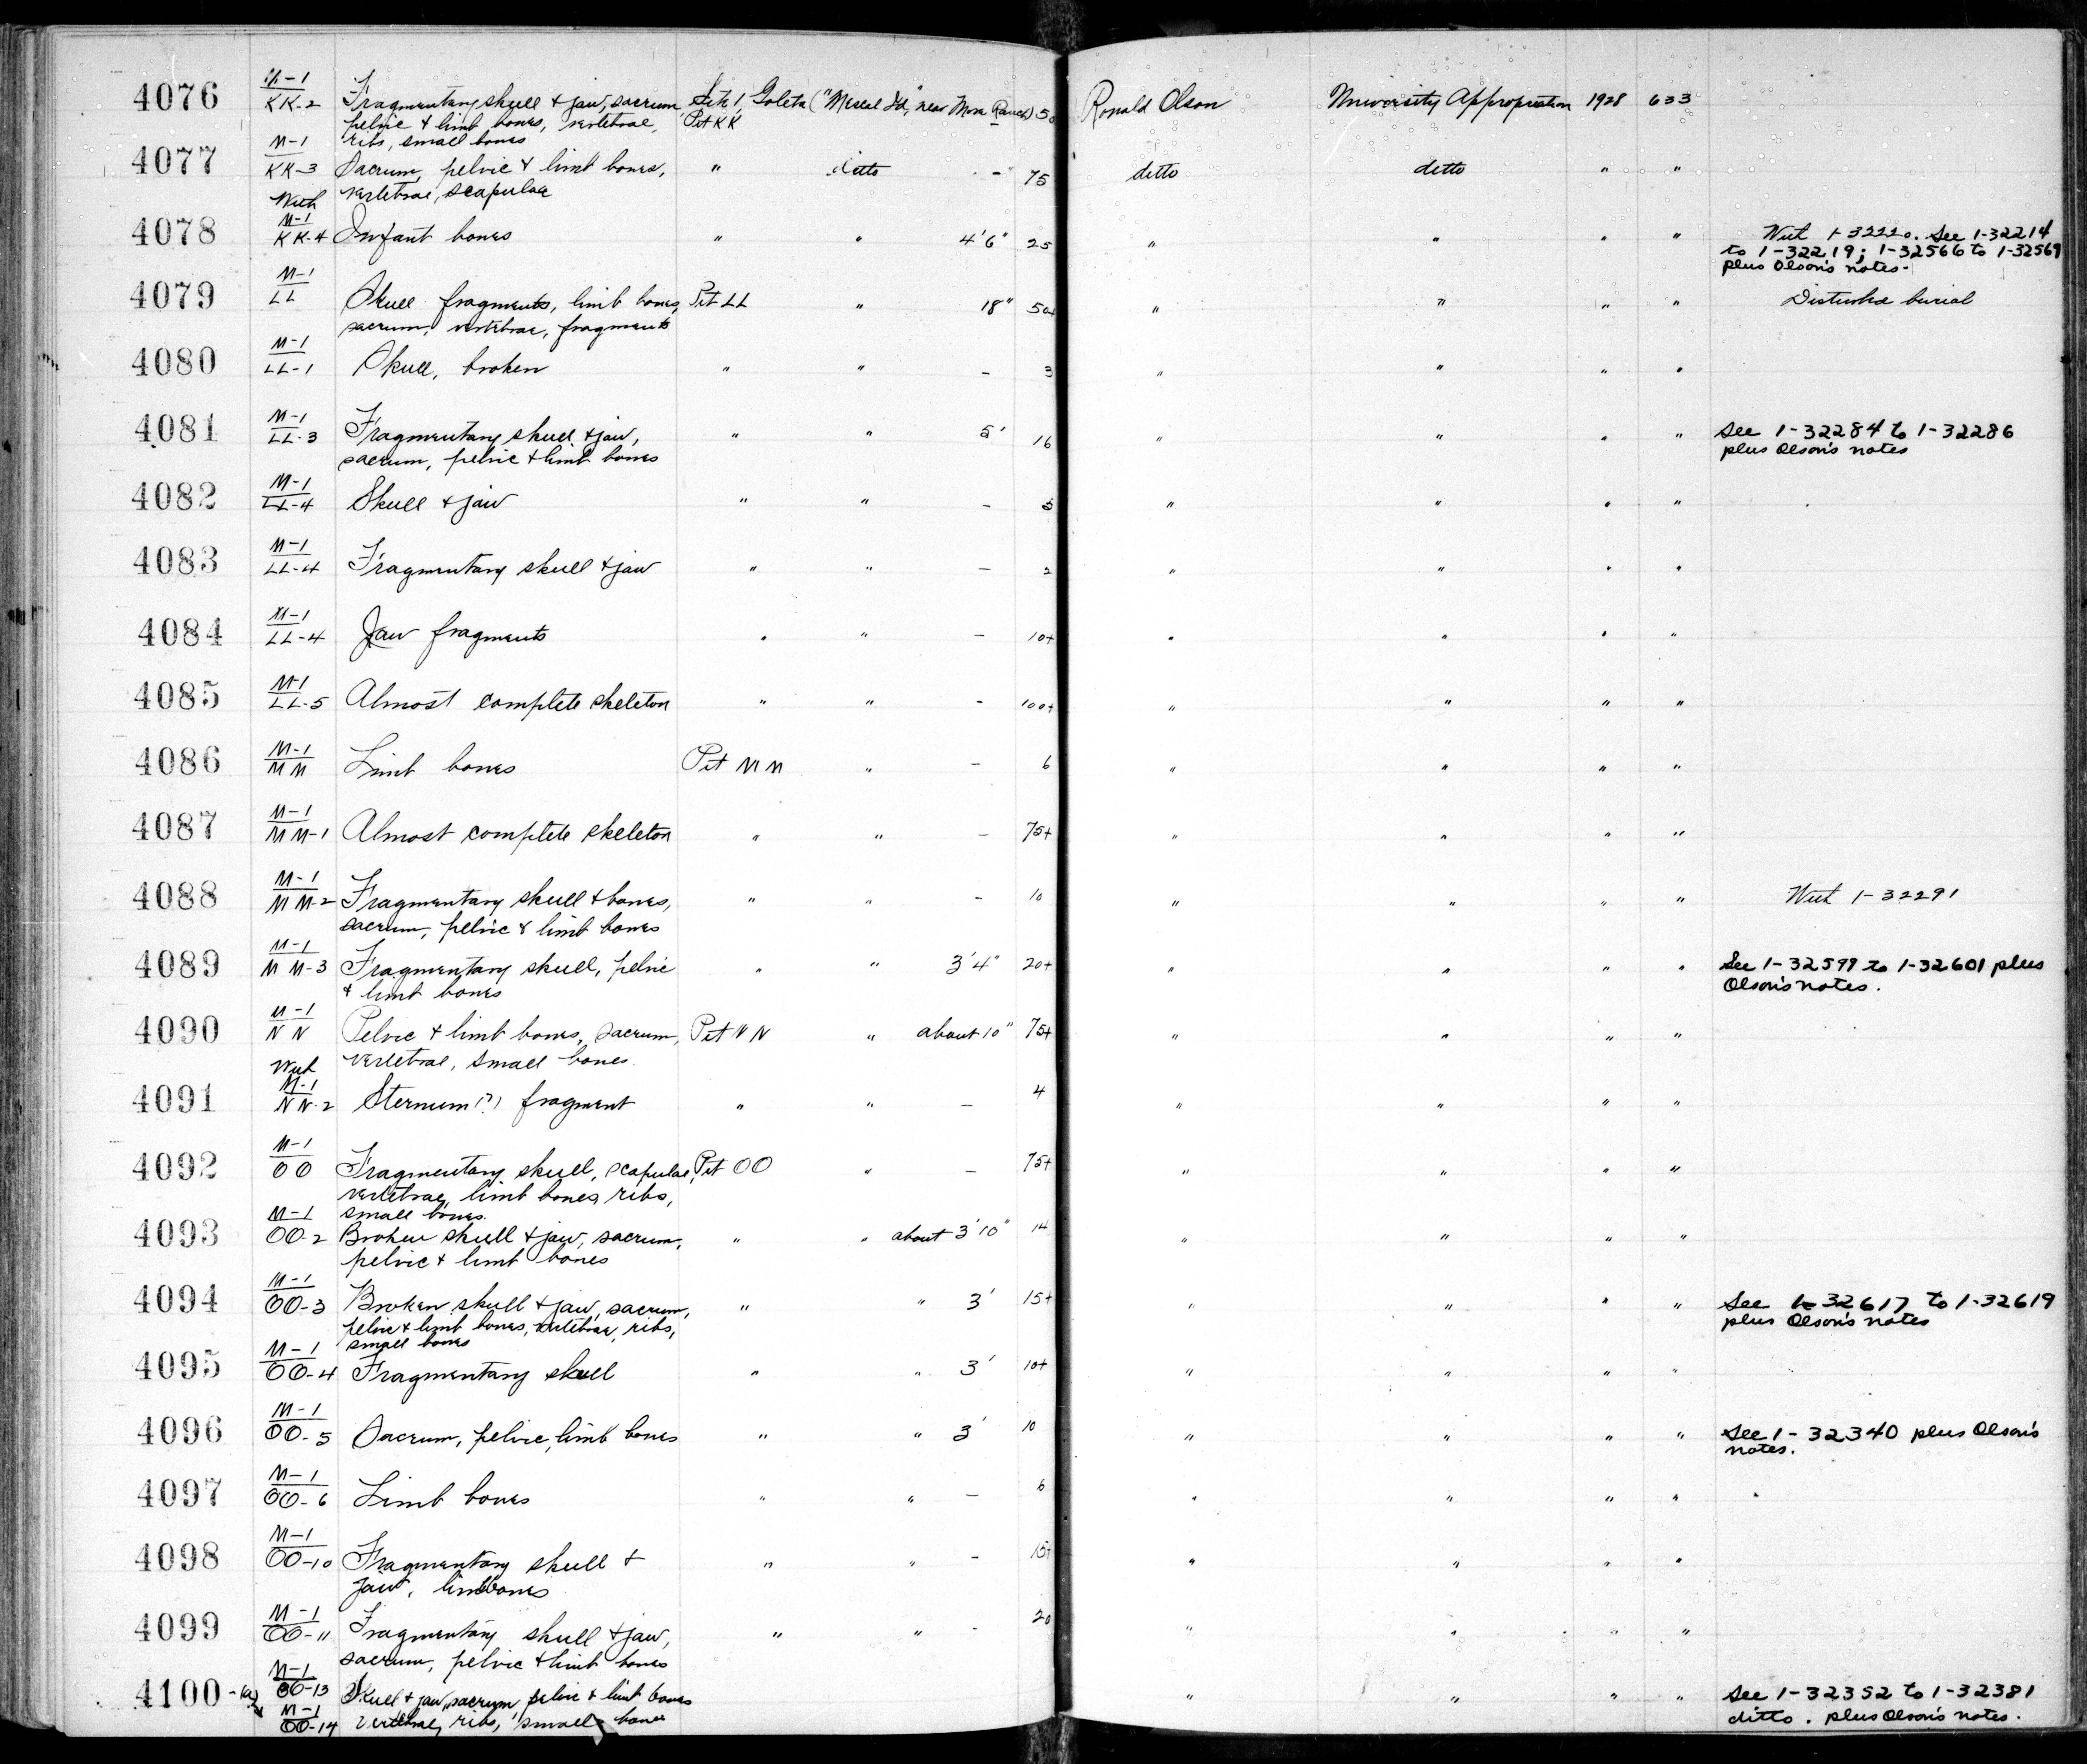 4076 M-1 Fragmentary skull & jaw, sacrum Site 1, Goleta ("Mescal Id," near More Ranch) 50 Ronald Olson University Appropriation 1928 633
KK-2 pelvic & limb bones, vertebrae, Pit KK
ribs, small bones
4077 M-1 Sacrum, pelvic & limb bones, " ditto - 75 ditto ditto " "
KK-3 vertebrae, scapulae
With
4078 M-1 Infant bones " " 4'6" 25 " " " " With 1-32220. See 1-32214
KK-4 to 1-32219; 1-32566 to 1-32569
plus Olson's notes.
4079 M-1 Skull fragments, limb bones, Pit LL " 18" 50+ " " " " Disturbed burial
LL sacrum, vertebrae, fragments
4080 M-1 Skull, broken " " - 3 " " " "
LL-1
4081 M-1 Fragmentary skull & jaw, " " 5' 16 " " " " See 1-32284 to 1-32286
LL-3 sacrum, pelvic & limb bones plus Olson's notes
4082 M-1 Skull & jaw " " - 5 " " " "
LL-4
4083 M-1 Fragmentary skull & jaw " " - 2 " " " "
LL-4
4084 M-1 Jaw fragments " " - 10+ " " " "
LL-4
4085 M-1 Almost complete skeleton " " - 100+ " " " "
LL-5
4086 M-1 Limb bones Pit MM " - 6 " " " "
MM
4087 M-1 Almost complete skeleton " " - 75+ " " " "
MM-1
4088 M-1 Fragmentary skull & bones, " " - 10 " " " " With 1-32291
MM-2 sacrum, pelvic & limb bones
4089 M-1 Fragmentary skull, pelvic " " 3'4" 20+ " " " " See 1-32599 to 1-32601 plus
MM-3 & limb bones Olson's notes.
4090 M-1 Pelvic & limb bones, sacrum, Pit NN " about 10" 75+ " " " "
NN vertebrae, small bones.
With
4091 M-1 Sternum (?) fragment " " - 4 " " " "
NN-2
4092 M-1 Fragmentary skull, scapulae, Pit OO " - 75+ " " " "
OO vertebrae, limb bones, ribs,
small bones.
4093 M-1 Broken skull & jaw, sacrum, " " about 3'10" 14 " " " "
OO-2 pelvic & limb bones
4094 M-1 Broken skull & jaw, sacrum, " " 3' 15+ " " " " See 1-32617 to 1-32619
OO-3 pelvic & limb bones, vertebrae, ribs, plus Olson's notes
small bones
4095 M-1 Fragmentary skull " " 3' 10+ " " " "
OO-4
4096 M-1 Sacrum, pelvic, limb bones " " 3' 10 " " " " See 1-32340 plus Olson's
OO-5 notes.
4097 M-1 Limb bones " " - 6 " " " "
OO-6
4098 M-1 Fragmentary skull & " " - 15+ " " " "
OO-10 jaw, limb bones
4099 M-1 Fragmentary skull & jaw, " " - 20 " " " "
OO-11 sacrum, pelvic & limb bones
4100 M-1 Skull & jaw, sacrum, pelvic & limb bones " " " " See 1-32352 to 1-32381
OO-13 vertebrae, ribs, small bones ditto. plus Olson's notes.
M-1
OO-14